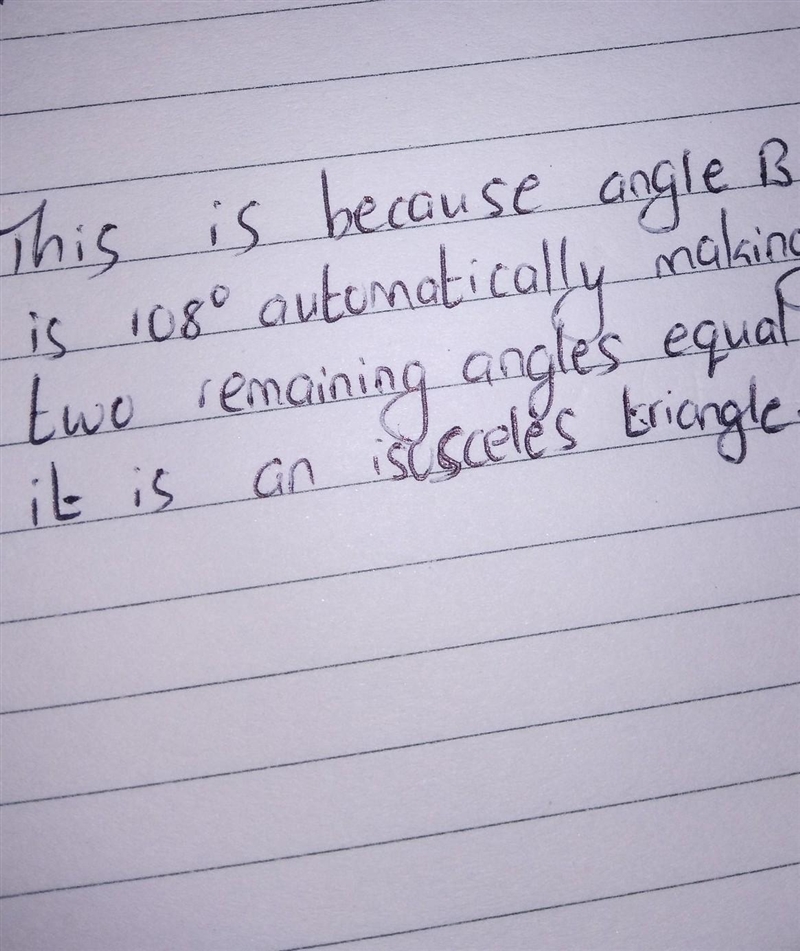 This is because angle B
is 108° automatically making
two remaining angles equal
it is an isosceles triangle.